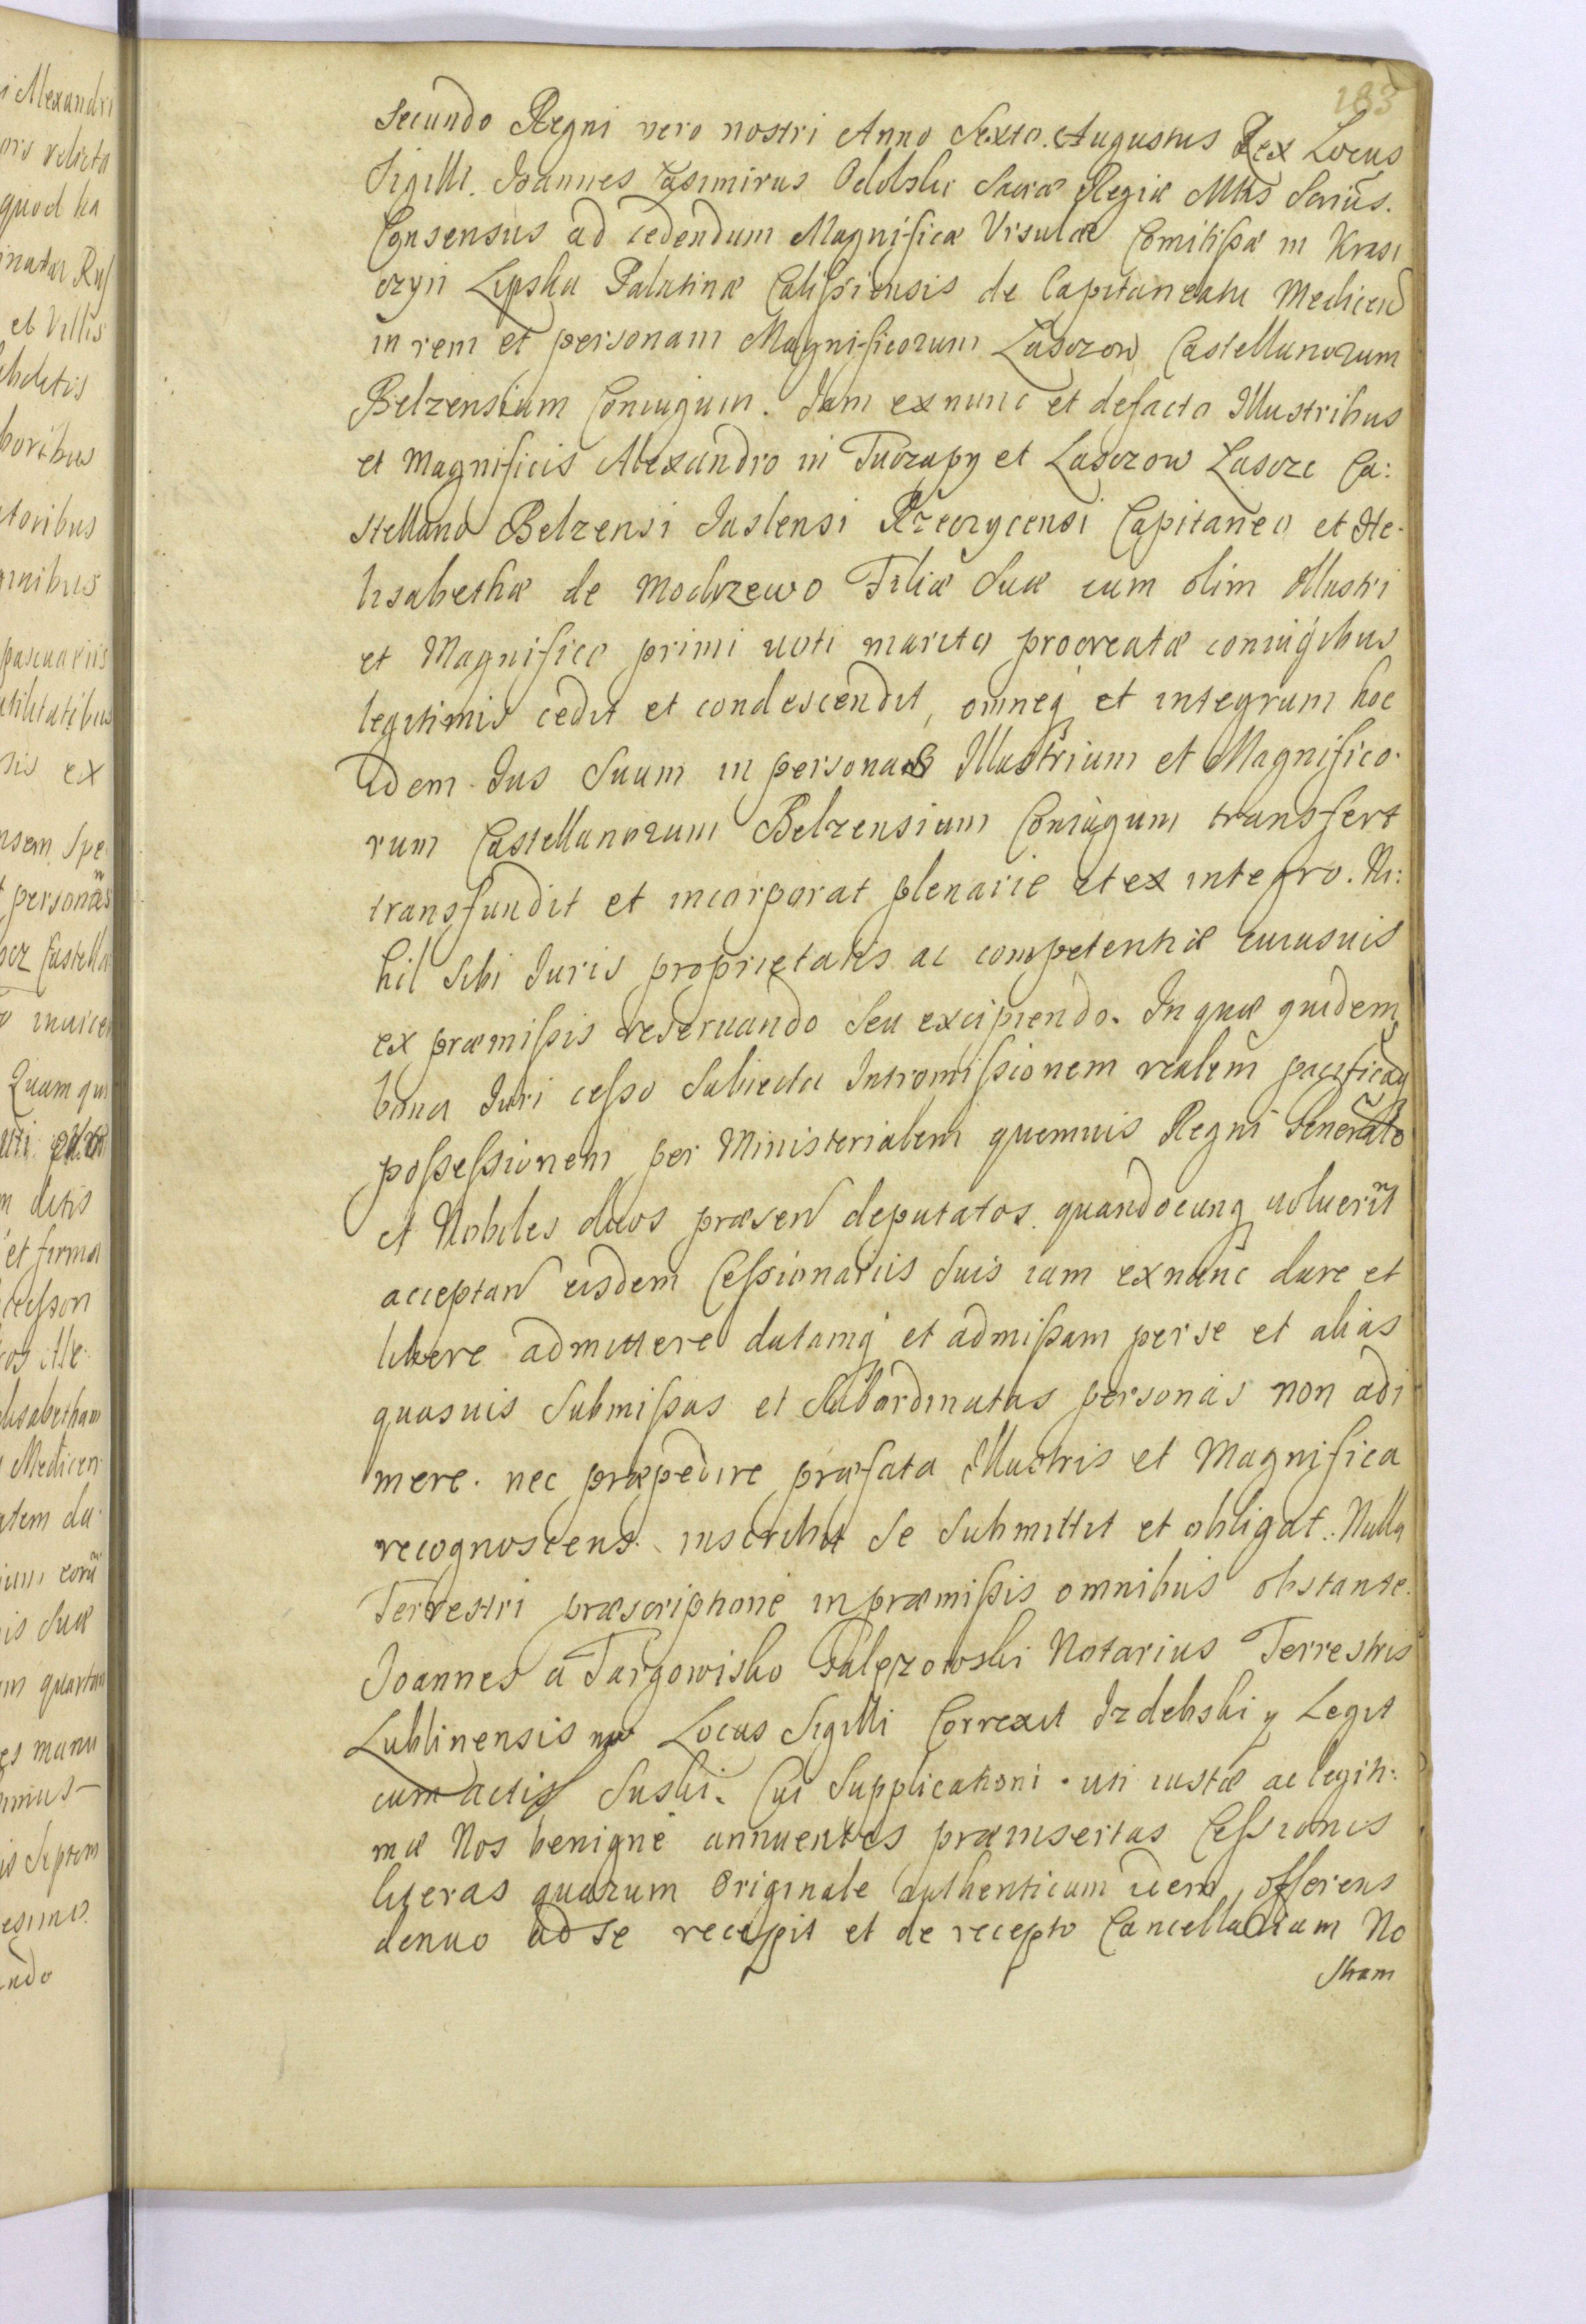 183
Secundo Regni vero nostri Anno Sexto. Augustus Rex Locus
Sigilli. Joannes Casimirus Odolski Sacræ Regiæ Mttis Scrius.
Consensus ad cedendum Magnificæ Ursulæ Comitissæ in Krasi
czyn Lipska Palatinæ Calissiensis de Capitaneatu Medicen
in rem et personam Magnificorum Lasczow Castellanorum
Belzensium Coniugum. Jam exnunc et defacto Illustribus
et Magnificis Alexandro in Tuczapy et Lasczow Lascz Ca:
stellano Belzensi Jaslensi Rzeczycensi Capitaneo et He-
lisabethæ de Modrzewo Filiæ Suæ cum olim Illustri
et Magnifico primi voti marito procreatæ coniugibus
legitimis cedit et condescendit, omneq et integrum hoc
idem Jus Suum in personas Illustrium et Magnifico-
rum Castellanorum Belzensium Coniugum transfert
transfundit et incorporat plenarie et ex integro. Ni:
hil Sibi Juris proprietatis ac competentiæ cuiusuis
ex præmissis reseruando Seu excipiendo. In quæ quidem
bona Juri cesso Subiecta Intromissionem realem pacificãq
possessionem per Ministerialem quemuis Regni Generale
et Nobiles duos præsen deputatos quandocunq voluerĩt
acceptan eisdem Cessionariis Suis iam exnunc dare et
libere admittere datamq et admissam per se et alias
quasuis Submissas et Subordinatas personas non adi
mere. nec præpedire præfata Illustris et Magnifica
recognoscens. inscribit Se Submittit et obligat. Nulla
Terrestri præscriptione in præmissis omnibus obstante.
Joannes a Targowisko Gałęzowski Notarius Terrestris
Lublinensis mp Locus Sigilli Correxit Izdebski y Legit
cum actis Suski. Cui Supplicationi uti iustæ ac legiti:
mæ Nos benigne annuentes præinsertas Cessionis
literas quarum Originale authenticum idem offerens
denuo ad se recepit et de recepto Cancellariam No
stram